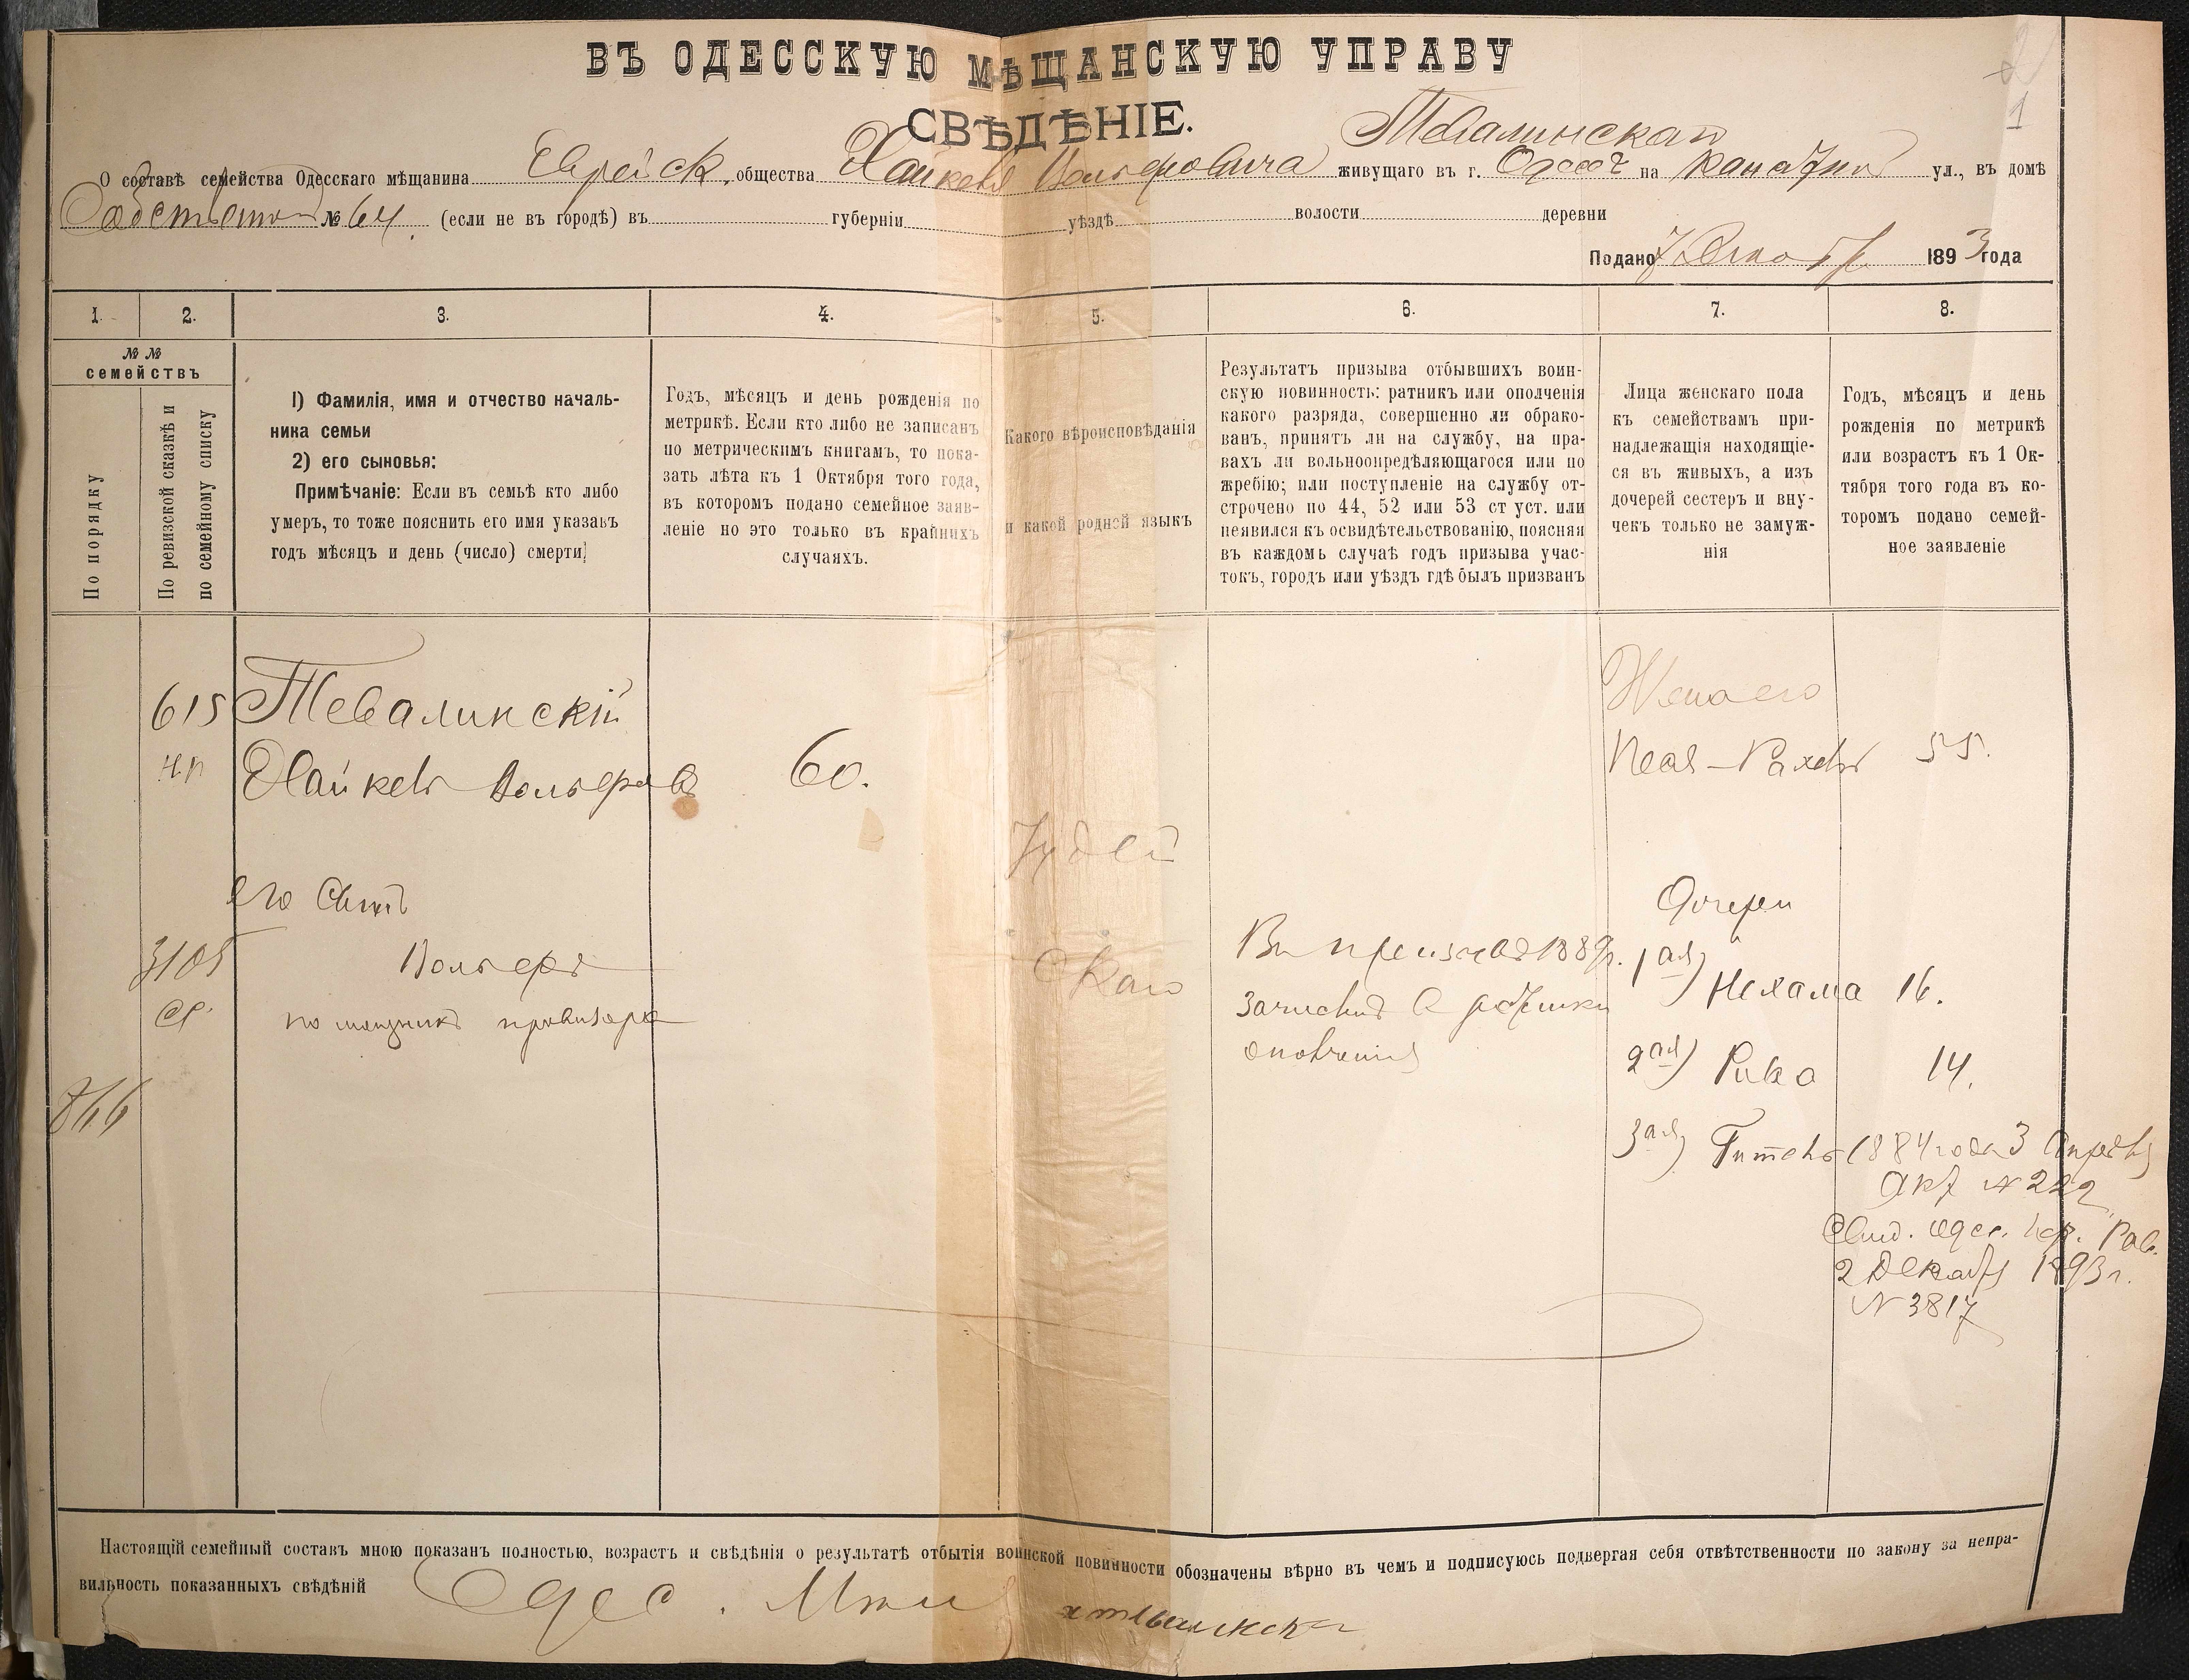 ВЪ ОДЕССКУЮ МѢЩАНСКУЮ УПРАВУ
СВѢДѢНІЕ.
Тевалинскаго
О составѣ семейства Одесскаго мѣщанина Еврейск. общества Хайкеля Вольфовича живущаго въ г. Одессѣ на Канатной ул., въ домѣ
Собствен № 64. (если не въ городѣ) въ губерніи уѣздѣ волости деревни
Подано 7 Декабр 1893 года
1. 2. 3. 4. 5. 6. 7. 8.
№ №
семействъ
По порядку
По ревизской сказкѣ и
по семейному списку
1) Фамилія, имя и отчество началь-
ника семьи
2) его сыновья:
Примѣчаніе: Если въ семьѣ кто либо
умеръ, то тоже пояснить его имя указавъ
годъ мѣсяцъ и день (число) смерти;
Годъ, мѣсяцъ и день рожденія по
метрикѣ. Если кто либо не записанъ
по метрическимъ книгамъ, то пока-
зать лѣта къ 1 Октября того года,
въ которомъ подано семейное заяв-
леніе но это только въ крайнихъ
случаяхъ.
Какого вѣроисповѣданія
и какой родной языкъ
Результатъ призыва отбывшихъ воин-
скую повинность: ратникъ или ополченія
какого разряда, совершенно ли обрако-
ванъ, принятъ ли на службу, на пра-
вахъ ли вольноопредѣляющагося или по
жребію; или поступленіе на службу от-
строчено по 44, 52 или 53 ст уст. или
неявился къ освидѣтельствованію, поясняя
въ каждомъ случаѣ годъ призыва учас-
токъ, городъ или уѣздъ гдѣ былъ призванъ
Лица женскаго пола
къ семействамъ при-
надлежащія находящіе-
ся въ живыхъ, а изъ
дочерей сестеръ и вну-
чекъ только не замуж-
нія
Годъ, мѣсяцъ и день
рожденія по метрикѣ
или возрастъ къ 1 Ок-
тября того года въ ко-
торомъ подано семей-
ное заявленіе
615 Тевалинскій
Хайкель Вольфовъ 60.
Жена его
Рахель 55.
Іудей
скаго
его Сынъ
3105 Вольфъ
помощникъ провизора
866
Въ призывъ 1889 г.
зачисленъ въ ратники
ополченія
Дочери
1ая) Нехама 16.
2ая) Рива 14.
3ая) Гитель 1884 года 3 Апрѣля
акт № 222
Свид. Одес. Рав.
2 Декабря 1893 г.
№ 3817
Настоящій семейный составъ мною показанъ полностью, возрастъ и свѣдѣнія о результатѣ отбытія воинской повинности обозначены вѣрно въ чемъ и подписуюсь подвергая себя отвѣтственности по закону за непра-
вильность показанныхъ свѣдѣній Одес.